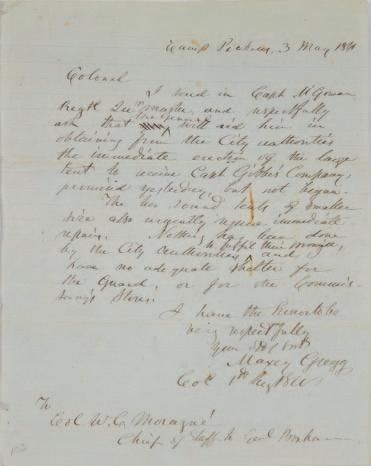 Camp Pickens, 3 May 1861
Colonel
I send in Capt McGowan
Regtl Qur master, and respectfully
ask that the General will aid him in
obtaining from the City authorities
the immediate erection of the large
tent to receive Capt Gibbes's Company,
promised yesterday, but not began.
The two round tents of smaller
size also urgently require immediate
repair. Nothing has been done
by the City authorities to fulfil their promise, and
have no adequate shelter for
the Guard, or for the Commis-
sary's Stores.
I have the honor to be
very respectfully
Your Obt Svt
Maxcy Gregg
Col 1st Reg
To
Col W. C. Moragné
Chief of Staff to Genl Bonham